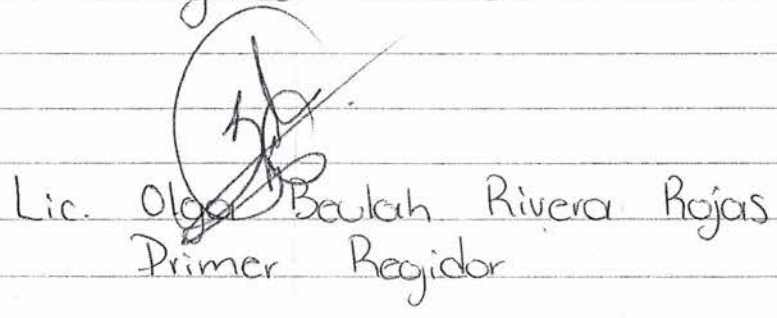 Lic. Olga Beulah Rivera Rojas
Primer Regidor